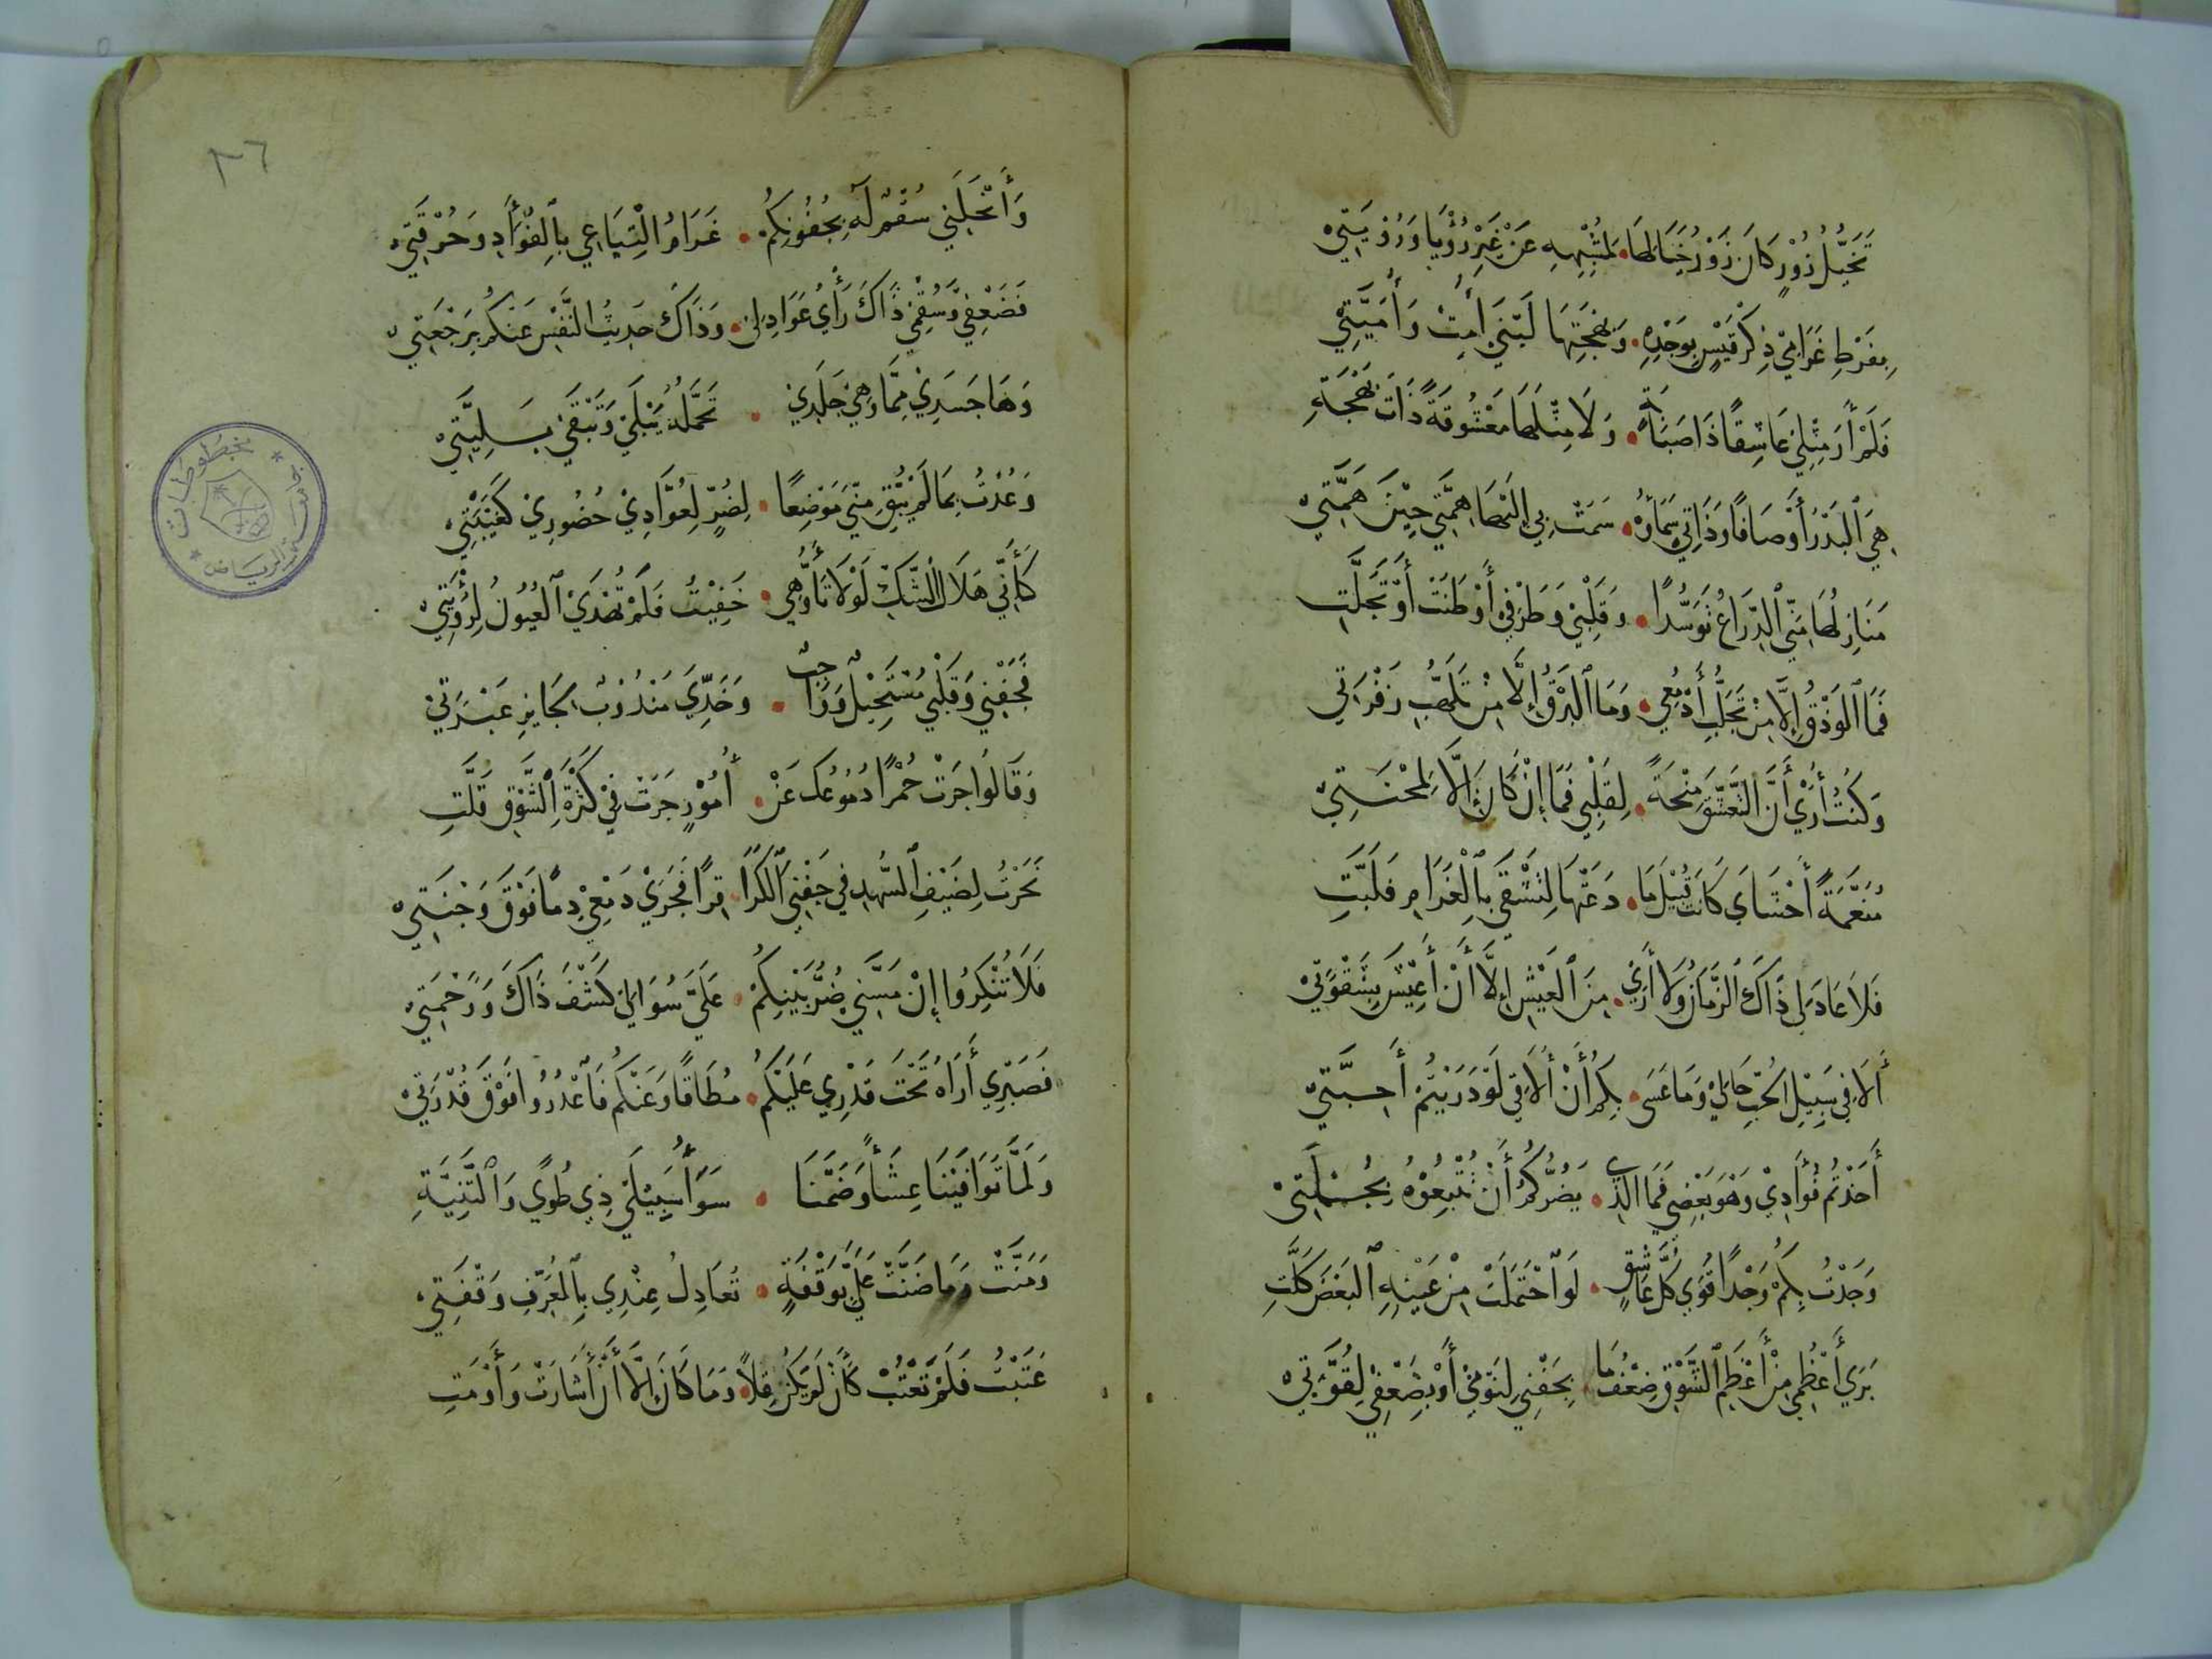 تَخَيُّلُ زُوْرٍ كَانَ زَوْرُ خَيَالِهَا • لِمُشْبِهِهِ عَنْ غَيْرِ رُؤْيَا وَرُؤْيَتِيْ
بِفَرْطِ غَرَامِيْ ذِكْرَ قَيْسٍ بِوَجْدِهِ • وَبَهْجَتِهَا لُبْنَى أَمَتُّ وَأَمَيَّتِيْ
فَلَمْ أَرَ مِثْلِيْ عَاشِقًا ذَا صَبَابَةٍ • وَلَا مِثْلَهَا مَعْشُوقَةً ذَاتَ بَهْجَةِ
هِيَ ٱلْبَدْرُ أَوْصَافًا وَذَاتِي سَمَاؤُهُ • سَمَتْ بِي إِلَيْهَا هِمَّتِي حِيْنَ هَمَّتِيْ
مَنَازِلُهَا مِنِّي ٱلذِّرَاعُ تَوَسُّدًا • وَقَلْبِيْ وَطَرْفِيْ أَوْطَنَتْ أَوْ تَجَلَّتِ
فَمَا ٱلْوَدْقُ إِلَّا مِنْ تَحَلُّبِ أَدْمُعِي • وَمَا ٱلْبَرْقُ إِلَّا مِنْ تَلَهُّبِ زَفْرَاتِي
وَكُنْتُ أَرَى أَنَّ التَّعَشُّقَ مِنْحَةً • لِقَلْبِي فَمَا إِنْ كَانَ إِلَّا لِمِحْنَتِيْ
مُنَعَّمَةً أَحْشَايَ كَانَتْ قُبَيْلَ مَا • دَعَتْهَا لِتَشْقَى بِٱلْغَرَامِ فَلَبَّتِ
فَلَا عَادَ لِي ذَاكَ ٱلزَّمَانُ وَلَا أَرَى • مِنَ ٱلْعَيْشِ إِلَّا أَنْ أَعِيْشَ بِشَقْوَتِيْ
أَلَا فِي سَبِيْلِ الْحُبِّ حَالِيْ وَمَا عَسَى • بِكُمْ أَنْ أُلَاقِي لَوْ دَرَيْتُمْ أَحِبَّتِيْ
أَخَذْتُمْ فُؤَادِيْ وَهْوَ بَعْضِي فَمَا الَّذِي • يَضُرُّكُمُ أَنْ تُتْبِعُوْهُ بِجُمْلَتِيْ
وَجَدْتُ بِكُمْ وَجْدًا قُوَى كُلِّ عَاشِقٍ • لَوِ ٱحْتَمَلَتْ مِنْ عَيْنِهِ ٱلْبَعْضَ كَلَّتِ
بَرَى أَعْظُمِي مِنْ أَعْظَمِ ٱلشَّوْقِ ضِعْفُ مَا • بِجَفْنِي لِنَوْمِيْ أَوْ بِضُعْفِيْ لِقُوَّتِيْ
٣٦
وَأَنْحَلَنِي سُقْمٌ لَهُ بِجُفُونِكُمْ • غَرَامُ الْتِيَاعِي بِٱلْفُؤَادِ وَحُرْقَتِيْ
فَضَعْفِي وَسُقْمِي ذَاكَ رَأْيُ عَوَاذِلِي • وَذَاكَ حَدِيثُ النَّفْسِ عَنْكُمْ بِرَجْعَتِيْ
وَهَا جَسَدِيْ مِمَّا وَهَى جَلَدِيْ • تَحَمُّلُهُ يَبْلَى وَتَبْقَى بَلِيَّتِيْ
وَعُدْتُ بِمَا لَمْ يُبْقِ مِنِّي مَوْضِعًا • لِضُرٍّ لِعُوَّادِيْ حُضُورِيْ كَغَيْبَتِيْ
كَأَنِّي هِلَالُ ٱلشَّكِّ لَوْلَا تَأَوُّهِي • خَفِيْتُ فَلَمْ تُهْدَىْ ٱلْعُيُونُ لِرُؤْيَتِيْ
فَجَفْنِي وَقَلْبِي مُسْتَحِيْلٌ وَوَاجِبٌ • وَخَدِّيَ مَنْدُوْبٌ لِجَايِزِ عَبْرَتِيْ
وَقَالُوا جَرَتْ حُمْرًا دُمُوعُكَ عَنْ • أُمُوْرٍ جَرَتْ فِيْ كَثْرَةِ ٱلشَّوْقِ قَلَّتِ
نَحَرْتُ لِضَيْفِ ٱلسُّهْدِ فِي جَفْنِيَ ٱلْكَرَا • قِرًا فَجَرَىْ دَمْعِيْ دِمًا فَوْقَ وَجْنَتِيْ
فَلَا تُنْكِرُوا إِنْ مَسَّنِي ضُرُّ بَيْنِكُمْ • عَلَيَّ سُوَالِي كَشْفَ ذَاكَ وَرَحْمَتِيْ
فَصَبْرِي أَرَاهُ تَحْتَ قَدْرِي عَلَيْكُمُ • مُطَاقًا وَعَنْكُمْ فَاعْذُرُوا فَوْقَ قُدْرَتِيْ
وَلَمَّا تَوَافَيْنَا عِشَاءً وَضَمَّنَا • سَوَاءُ سَبِيْلَيْ ذِي طُوًى وَٱلثَّنِيَّةِ
وَمَنَّتْ وَمَا ضَنَّتْ عَلَيَّ بِوَقْفَةٍ • تُعَادِلُ عِنْدِي بِٱلْمُعَرَّفِ وَقْفَتِي
عَتَبْتُ فَلَمْ تَعْتِبْ كَأَنْ لَمْ يَكُنْ لِقًا • وَمَا كَانَ إِلَّا أَنْ أَشَارَتْ وَأَوْمَتِ
مخطوطات
جامعة الرياض